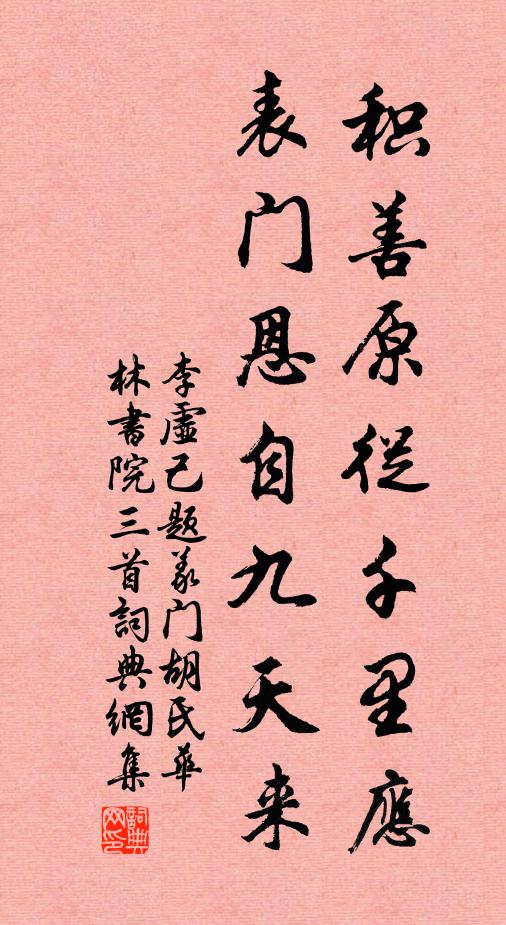 积善原從千里應
表门恩自九天来
李虚己题义门胡氏華
林書院三首詞典網集
詞典网印